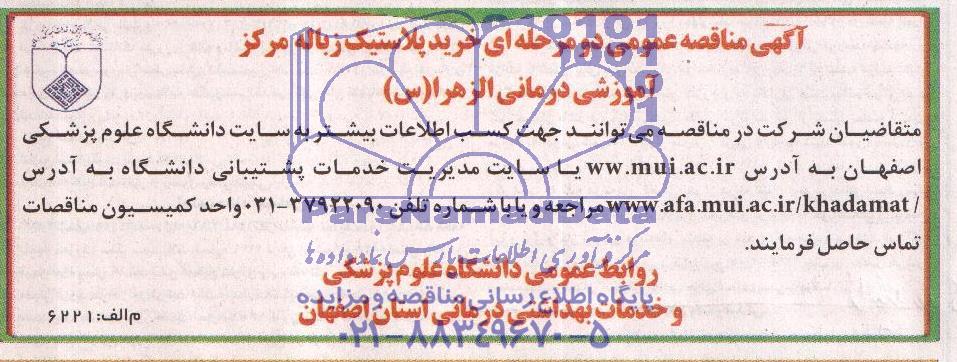 آگهی مناقصه عمومی دو مرحله ای خرید پلاستیک زباله مرکز
آموزشی درمانی الزهرا(س)
متقاضیان شرکت در مناقصه می توانند جهت کسب اطلاعات بیشتر به سایت دانشگاه علوم پزشکی
اصفهان به آدرس ww.mui.ac.ir یا سایت مدیریت خدمات پشتیبانی دانشگاه به آدرس
www.afa.mui.ac.ir/khadamat/ مراجعه و یا با شماره تلفن ۳۷۹۲۲۰۹۰-۰۳۱ واحد کمیسیون مناقصات
تماس حاصل فرمایند.
روابط عمومی دانشگاه علوم پزشکی
و خدمات بهداشتی درمانی استان اصفهان
م الف: ۶۲۲۱
ParsNamadData
مرکز فرآوری اطلاعات پارس نماد داده ها
پایگاه اطلاع رسانی مناقصه و مزایده
۰۲۱-۸۸۳۴۹۶۷۰-۵